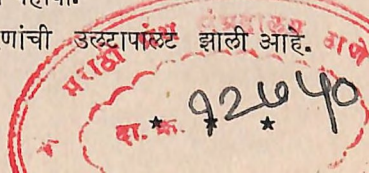 णांची उलटापालट झाली आहे.
मराठी ग्रंथ संग्रहालय ठाणे
दा. क्र. १२७५०
* * *